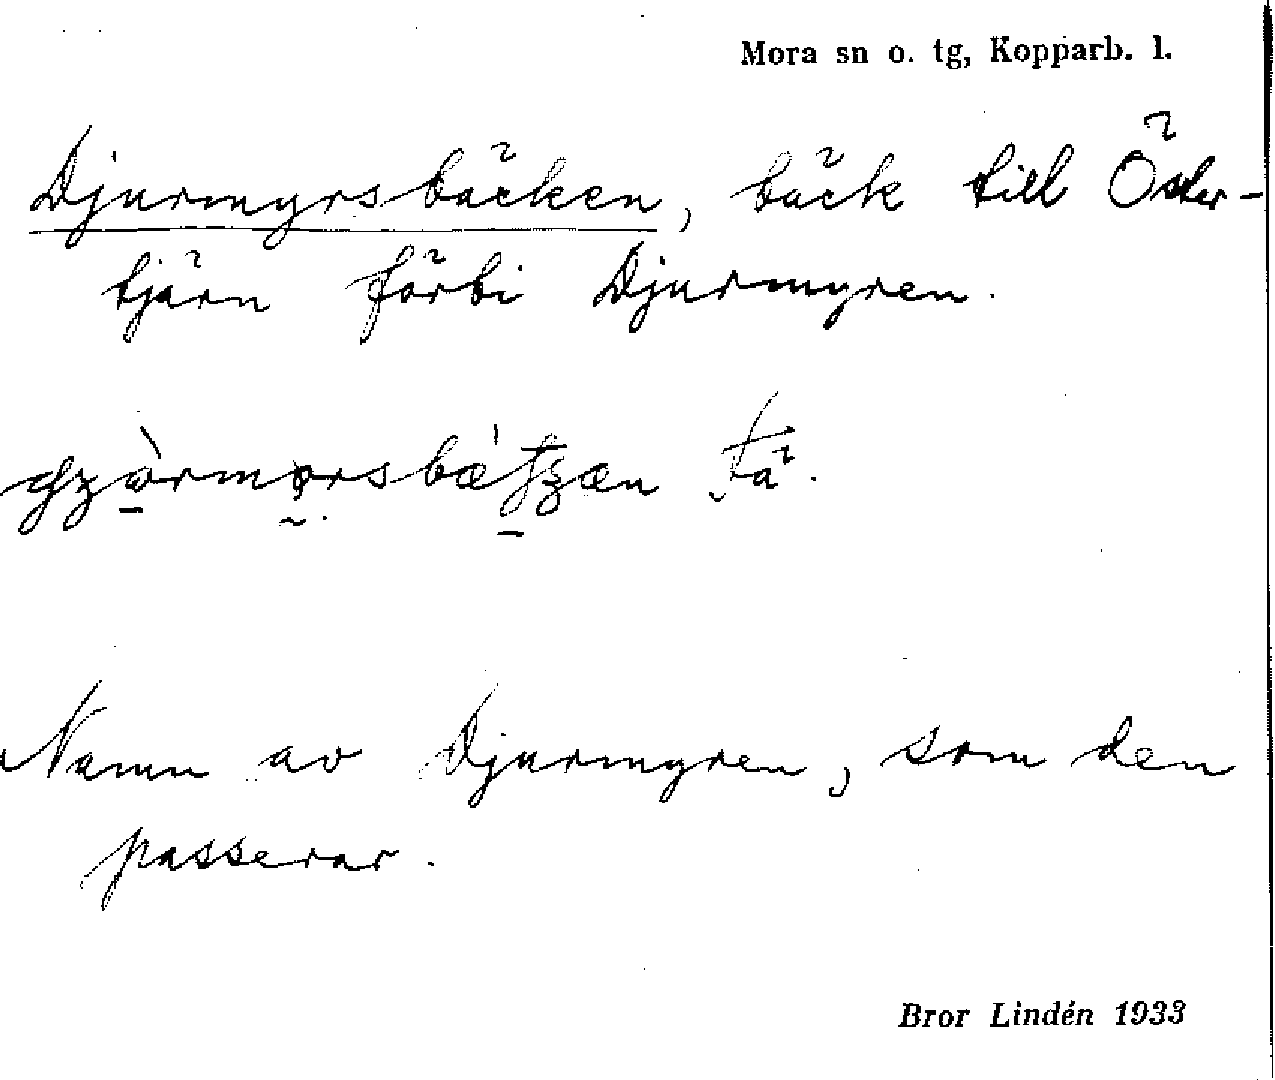 Mora sn o. tg, Kopparb. l.
Djurmyrsbäcken, bäck till Öster-
tjärn förbi Djurmyren.
Namn av Djurmyren, som den
passerar.
Bror Lindén 1933